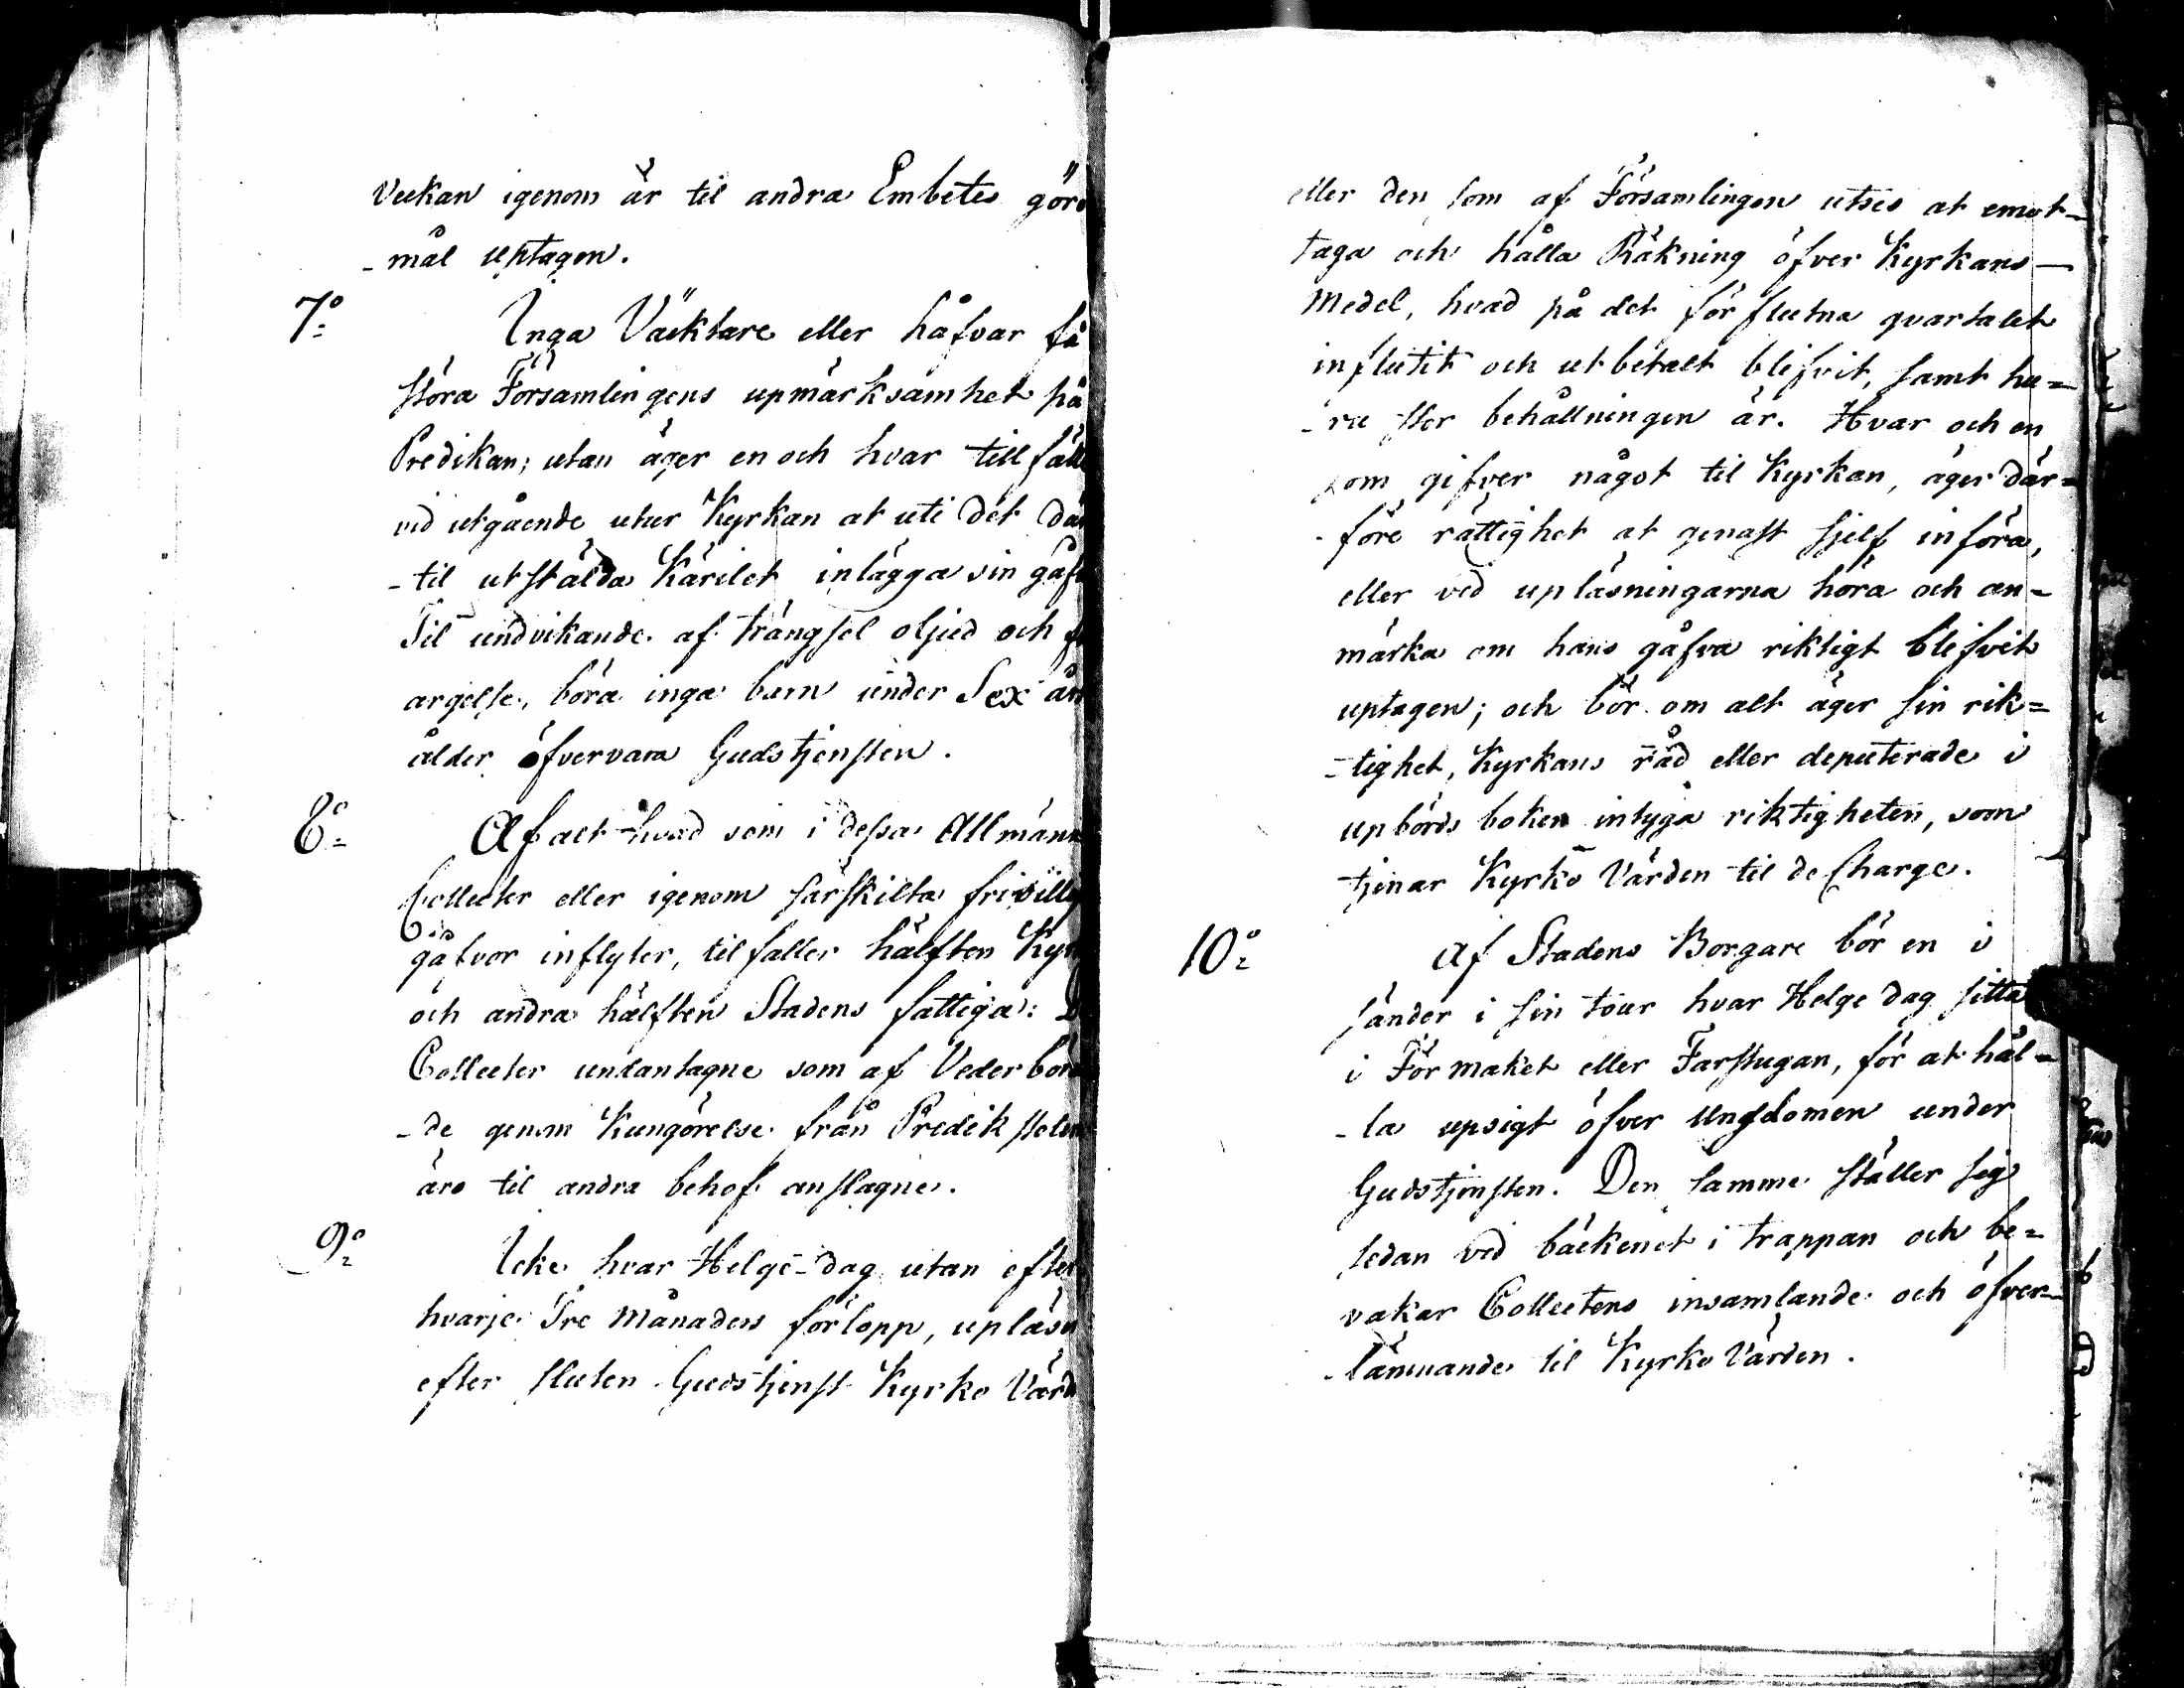 Veckan igenom är til andra Embetes göro
-mål uptagen.
7o= Inga Väcktare eller håfvar få
störa Församlingens upmärksamhet på
Predikan; utan äger en och hvar tillfälle
vid utgående utur Kyrkan at uti det där
-til utstälda Kärilet inlägga sin gåfv
Til undvikande af trängsel oljud och
argelse, böra inga barn under Sex års
ålder öfvervara Gudstjensten.
8o= Af alt hvad som i dessa Allmänn
Collecter eller igenom särskilta frivillig
gåfvor inflyter, tilfaller hälften Kyr
och andra hälften Stadens fattiga: D
Collecter undantagne som af Vederbör
-de genom Kungörelse från Predikstolen
äro til andra behof anslagne.
9o= Icke hvar Helge-dag utan efter
hvarje Tre Månaders förlopp, upläser
efter sluten Gudstjenst Kyrko Värd
eller den som af Församlingen utses at emot-
taga och hålla Räkning öfver Kyrkans —
Medel, hvad på det förflutna qvartalet
influtit och utbetalt blifvit, samt hu=
-ru stor behållningen är. Hvar och en
som gifver något til Kyrkan, äger där=
-före rättighet at genast sjelf införa,
eller vid upläsningarna höra och an=
märka om hans gåfva riktigt blifvit
uptagen; och bör om alt äger sin rik=
=tighet, Kyrkans råd eller deputerade i
upbörds boken intyga riktigheten, som
tjenar Kyrko Värden til de Charge.
10o= Af Stadens Borgare bör en i
sänder i sin tour hvar Helge dag sitta
i Förmaket eller Farstugan, för at hål=
-la upsigt öfver Ungdomen under
Gudstjensten. Den samme ställer sig
sedan vid bäckenet i trappan och be=
vakar Collectens insamlande och öfver-
-lämnande til Kyrko Värden.